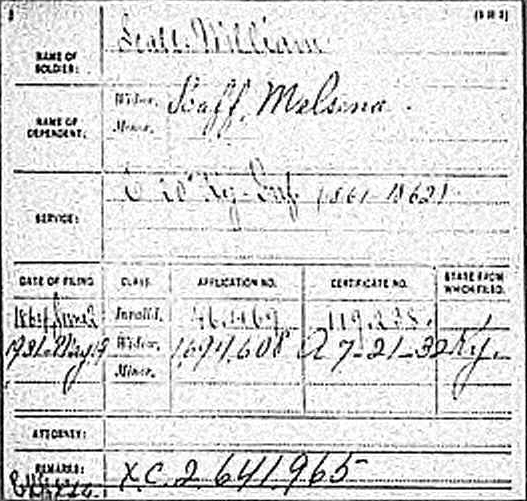 NAME OF SOLDIER: Scaff, William
NAME OF DEPENDENT: Widow, Scaff, Melsena
Minor,
SERVICE: Ky. Inf. 1861-1862
DATE OF FILING. CLASS. APPLICATION NO. CERTIFICATE NO. STATE FROM WHICH FILED.
Invalid, 119,238.
1931 May 9 Widow, 1,697,608 A 7-21-32 Ky.
Minor,
ATTORNEY:
REMARKS: X.C. 2,641,965